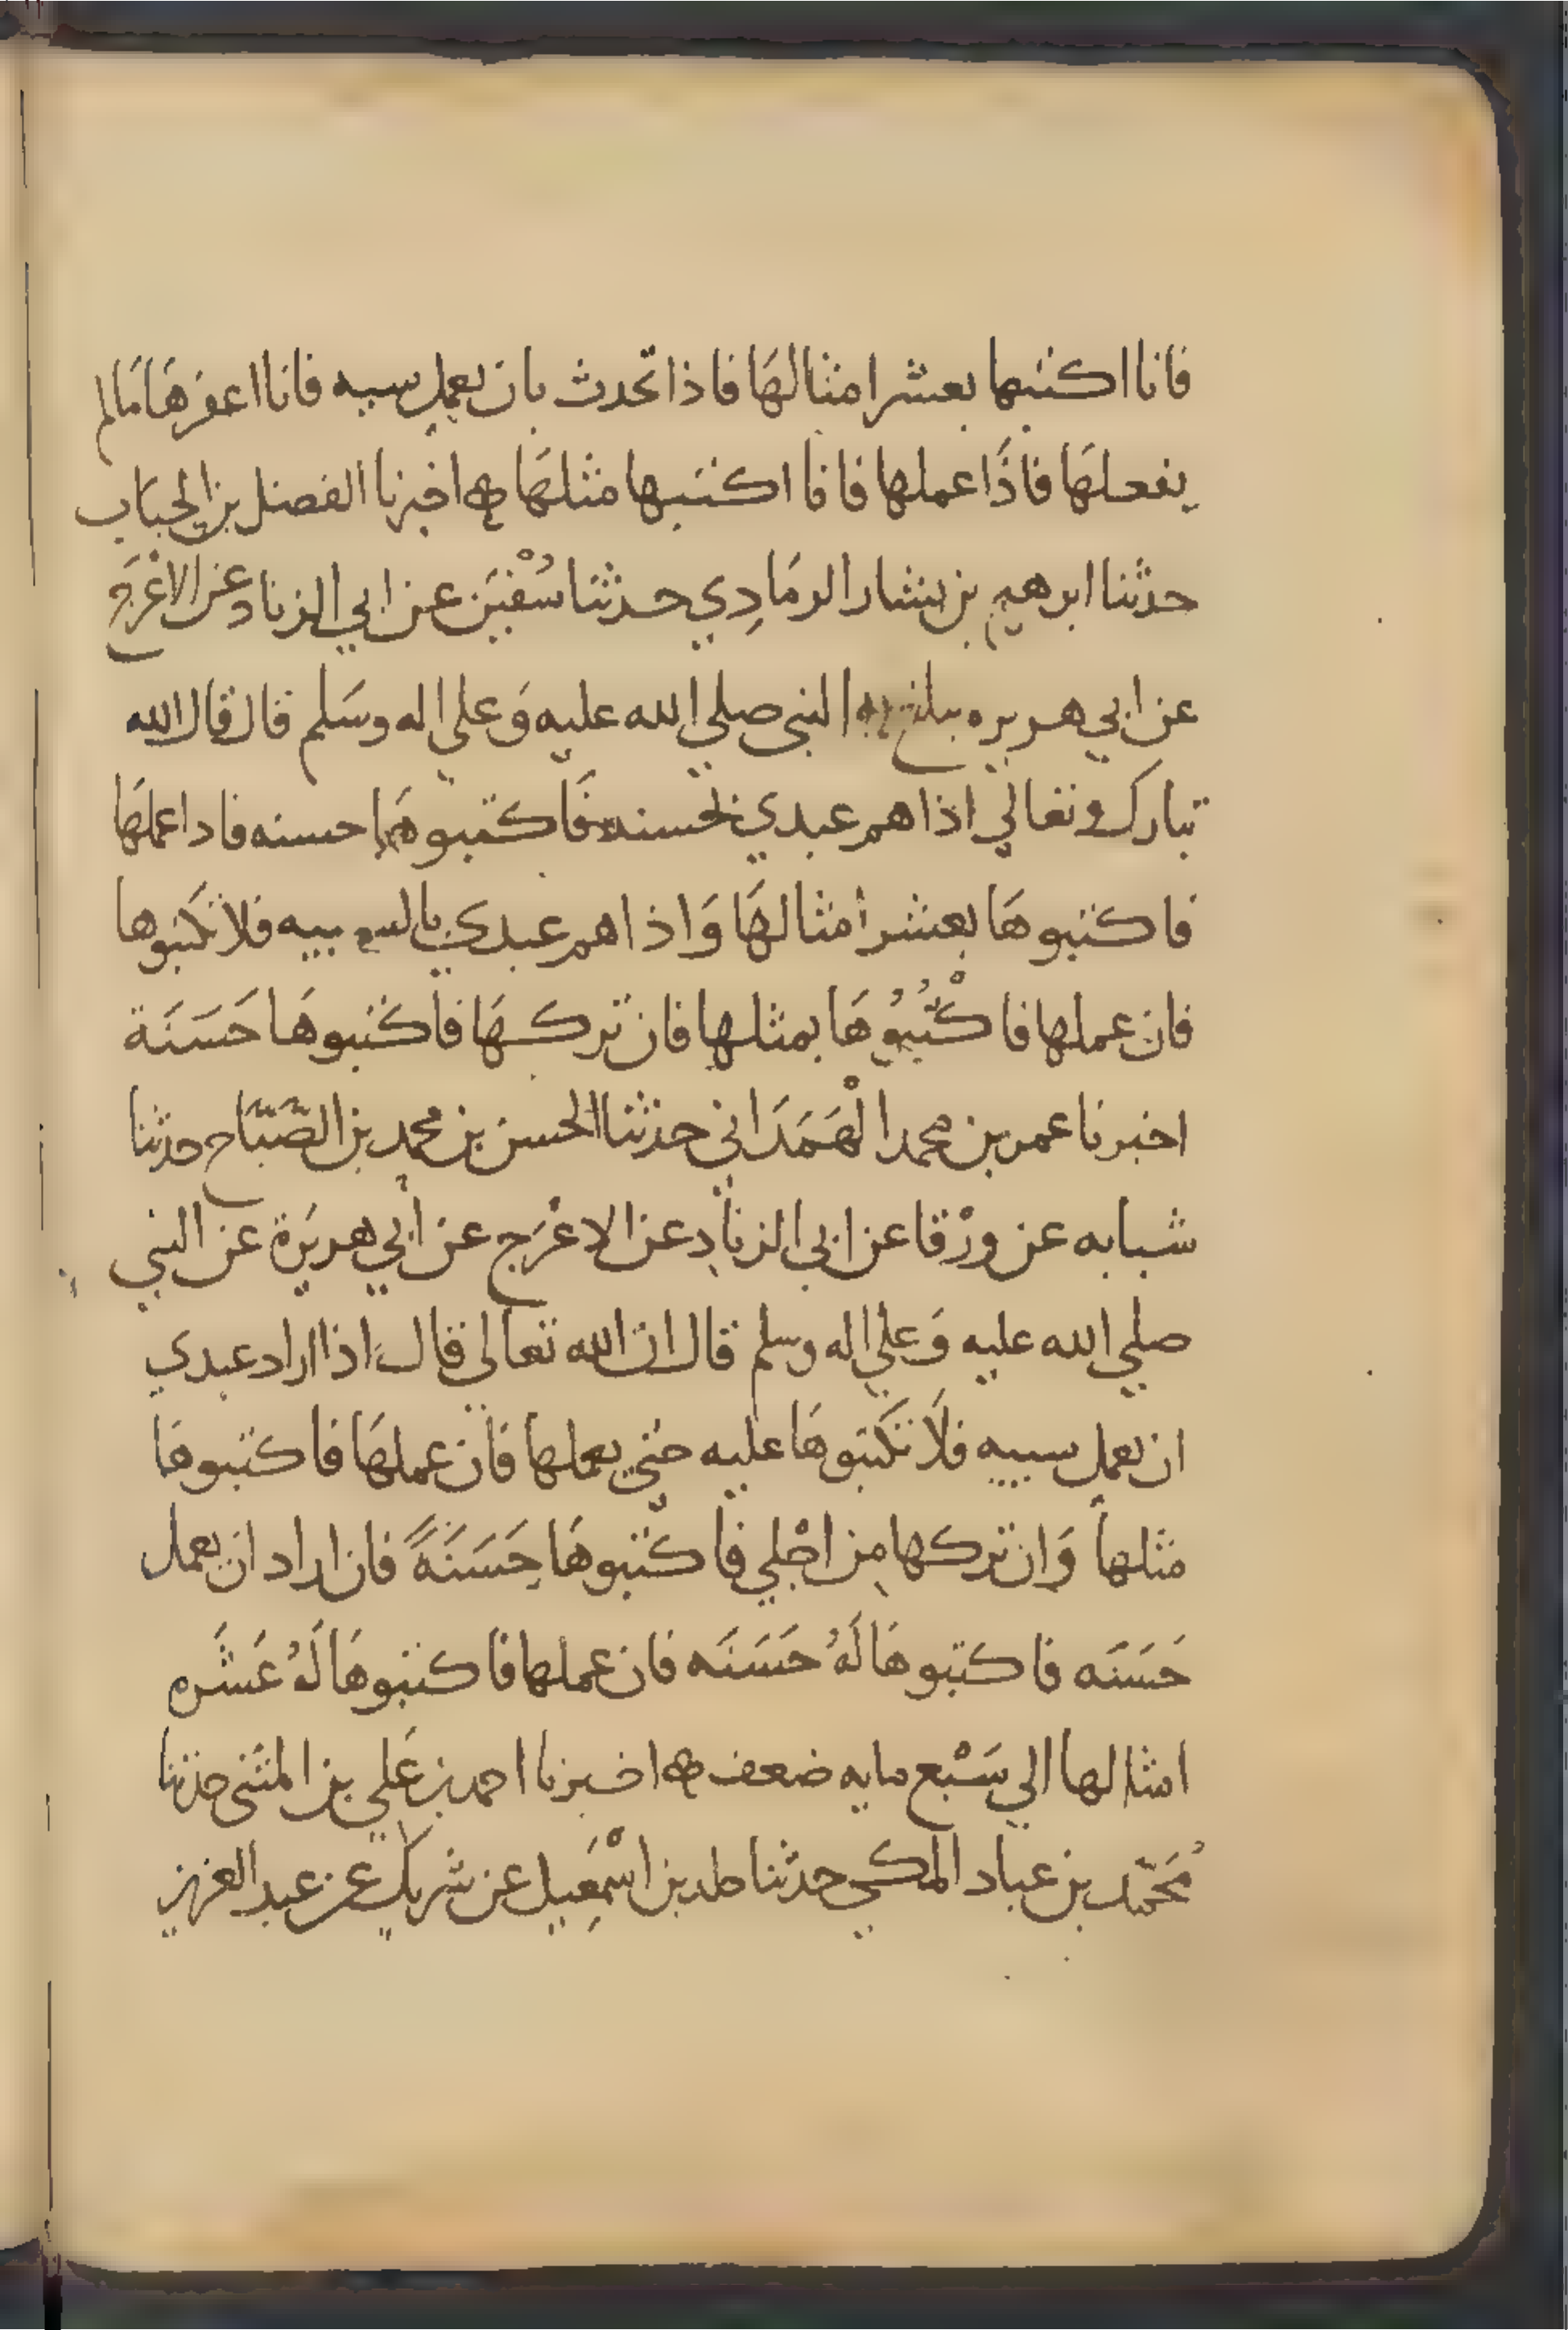 فانا اكتبها بعشر امثالها فاذا تحدث بان يعمل سيه فانا اغفرها مالم
يفعلها فاذا عملها فانا اكتبها مثلها ه اخبرنا الفضل بن الحباب
حدثنا ابرهيم بن بشار الرمادي حدثنا سُفْيَن عن ابي الزناد عن الاعْرَج
عن ابي هريره يبلغ به النبي صلي الله عليه وَعلي اله وسَلم قال قال الله
تبارك وتعالي اذا هم عبدي بحسنه فَاكتبوها حسنه فاذا عملها
فاكتبوهَا بعشر امثالهَا وَاذا هم عبدي بالسييه فلا تكتبوها
فان عملها فاكْتُبُوُهَا بمثلها فان تركهَا فاكتبوهَا حَسَنَة
اخبرنا عمر بن محمد الْهَمَدَاني حدثنا الحسن بن محمد بن الصَّبَّاح حدثنا
شبابه عن ورْقا عن ابي الزناد عن الاعْرَج عن ابي هريرَة عن النبي
صلي الله عليه وَعلي اله وسلم قال ان الله تعالي قال اذا اراد عبدي
ان يعمل سييه فلَا تَكتبوهَا عليه حتي يعملها فان عملهَا فاكتبوهَا
مثلهاً وَان تركها مِن اجْلي فاكتبوهَا حَسَنَةً فان اراد ان يعمل
حَسَنَه فاكتبوهَا لَهُ حَسَنَه فان عملها فاكتبوهَا لَهُ عَشَره
امثالها الي سَبْع مايه ضعف ه اخبرنا احمد بن عَلي بن المثني حدثنا
مُحَمّد بن عباد المكي حدثنا حاتم بن اسْمَعِيل عن شريك عن عبد العزيز